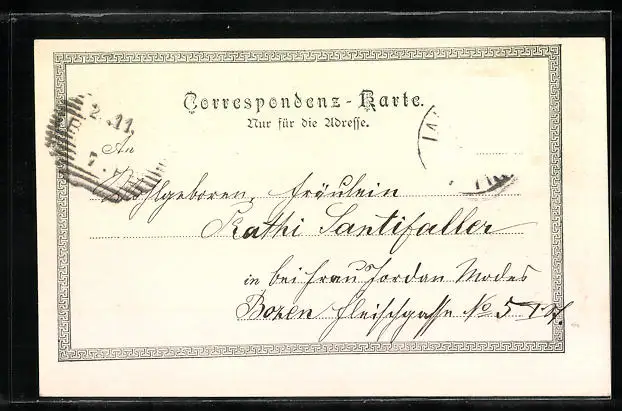 Correspondenz-Karte.
Nur für die Adresse.
2.11.
An
Wohlgeboren, Fräulein
Kathi Santifaller
in bei Frau Jordan Modes
Bozen Fleischgasse No 5